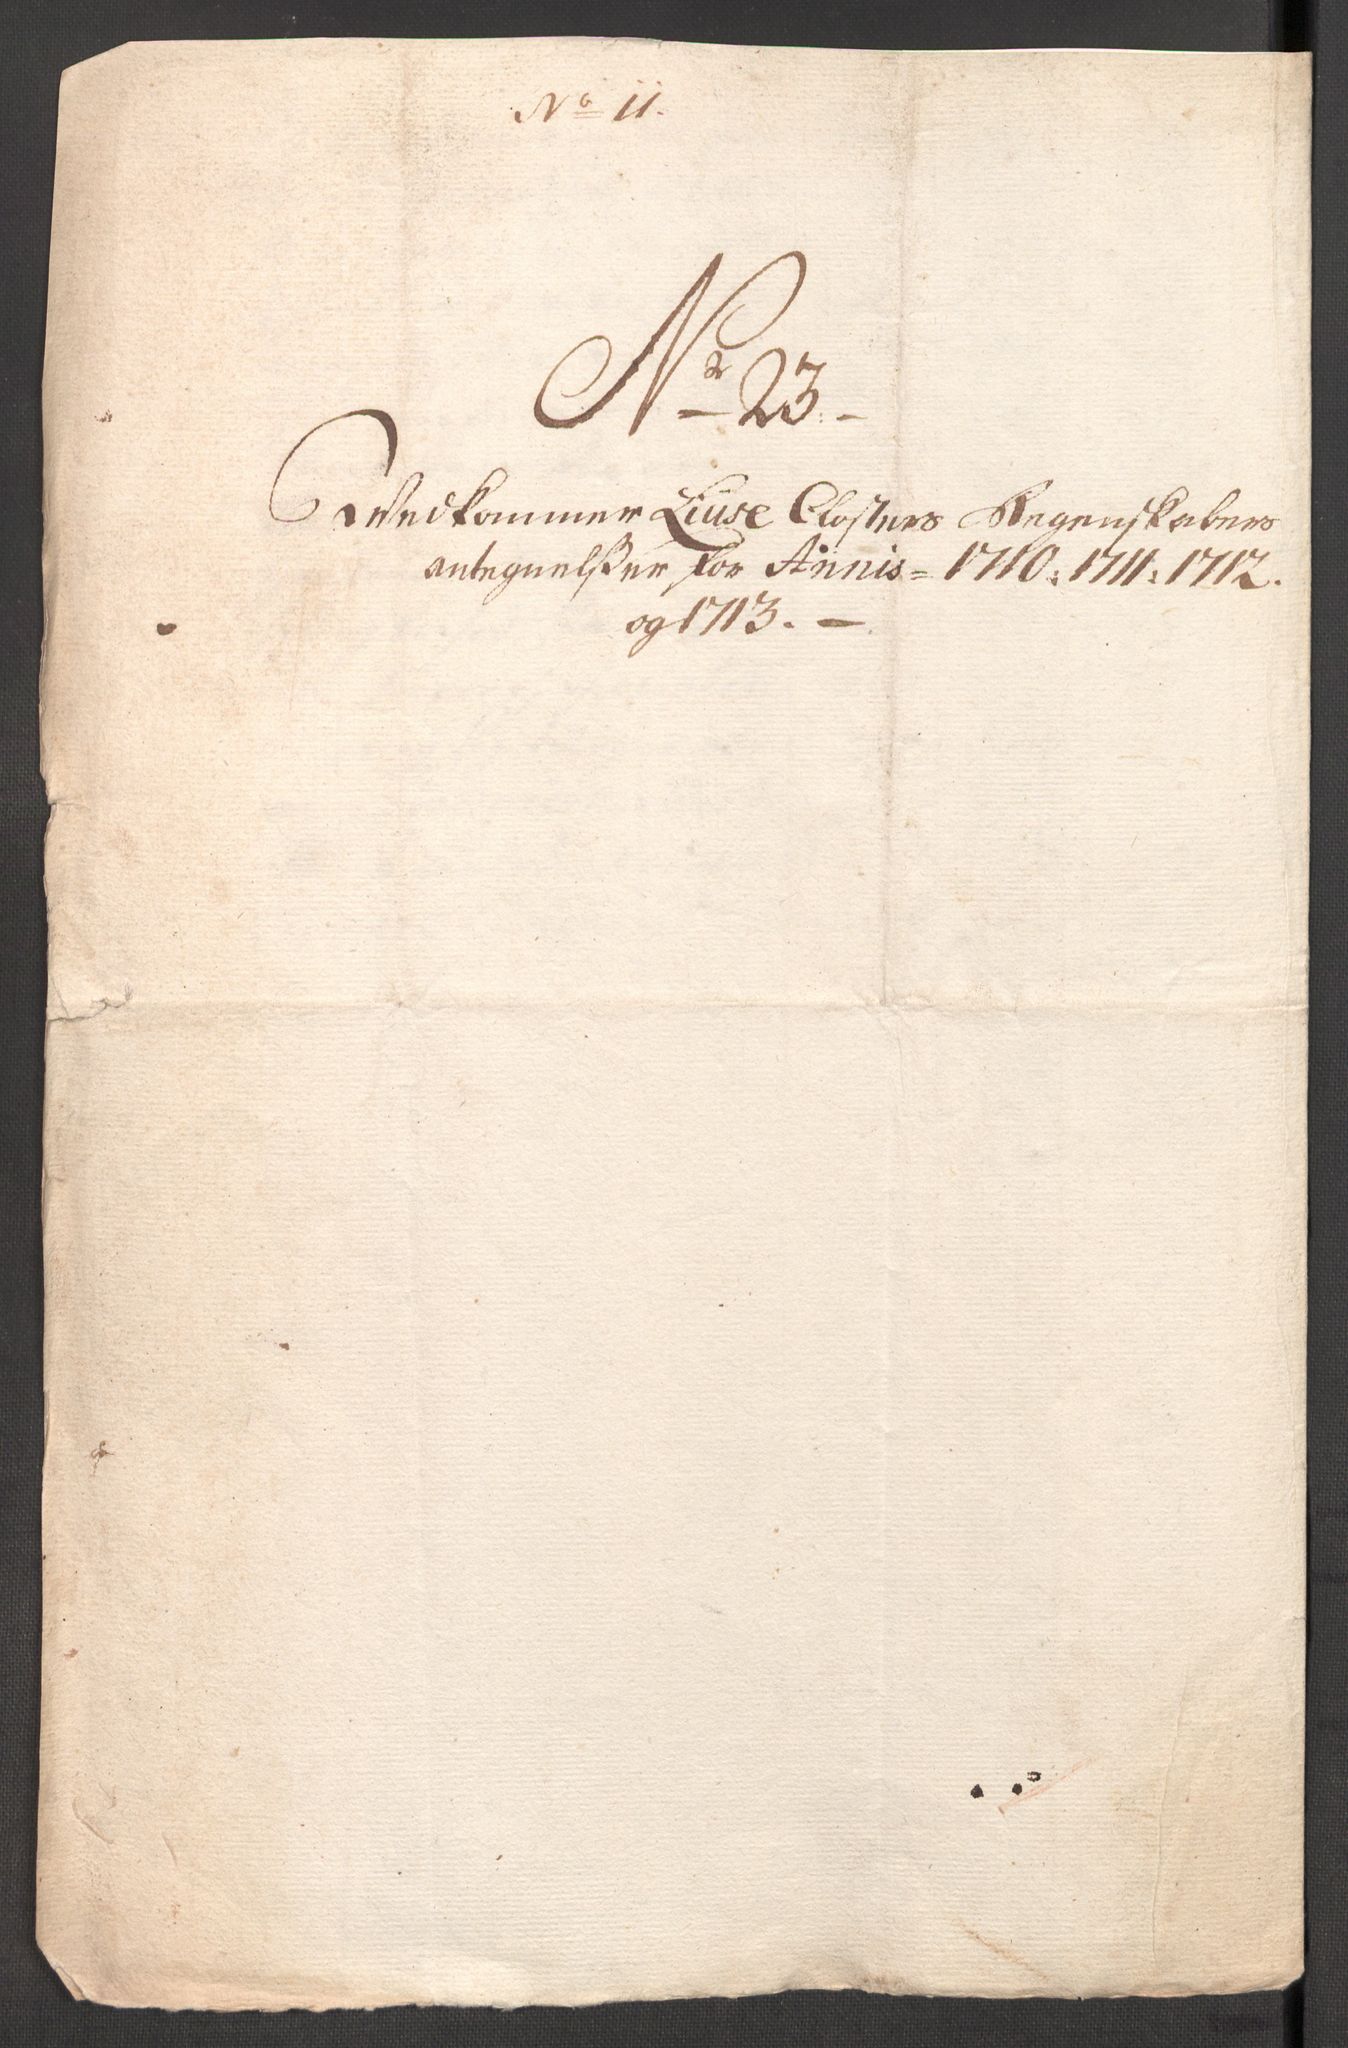 No 11.
Nr 23.
Wedkommer Liuse Closters Regenskabers
antegnelsker for Annis = 1710: 1711: 1712.
og 1713. —